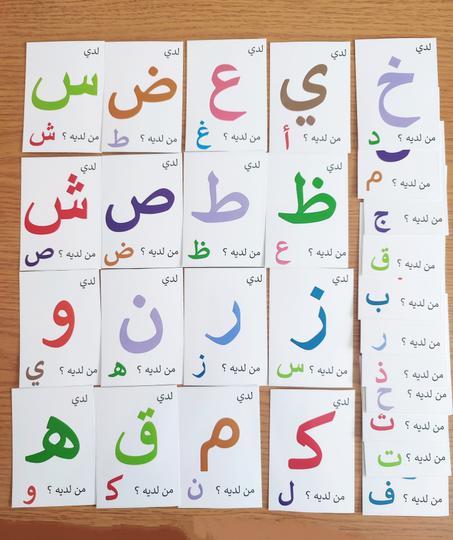 لدي
خ
من لديه ؟ د
من لديه ؟ م
من لديه ؟ ج
من لديه ؟ ق
من لديه ؟ ب
من لديه ؟ ر
من لديه ؟ ذ
من لديه ؟ ح
من لديه ؟ ث
من لديه ؟ ت
من لديه ؟ ف
لدي
ي
من لديه ؟ أ
لدي
ع
من لديه ؟ غ
لدي
ض
من لديه ؟ ط
لدي
س
من لديه ؟ ش
لدي
ظ
من لديه ؟ ع
لدي
ط
من لديه ؟ ظ
لدي
ص
من لديه ؟ ض
لدي
ش
من لديه ؟ ص
لدي
ز
من لديه ؟ س
لدي
ر
من لديه ؟ ز
لدي
ن
من لديه ؟ ه
لدي
و
من لديه ؟ ي
لدي
ك
من لديه ؟ ل
لدي
م
من لديه ؟ ن
لدي
ق
من لديه ؟ ك
لدي
ه
من لديه ؟ و